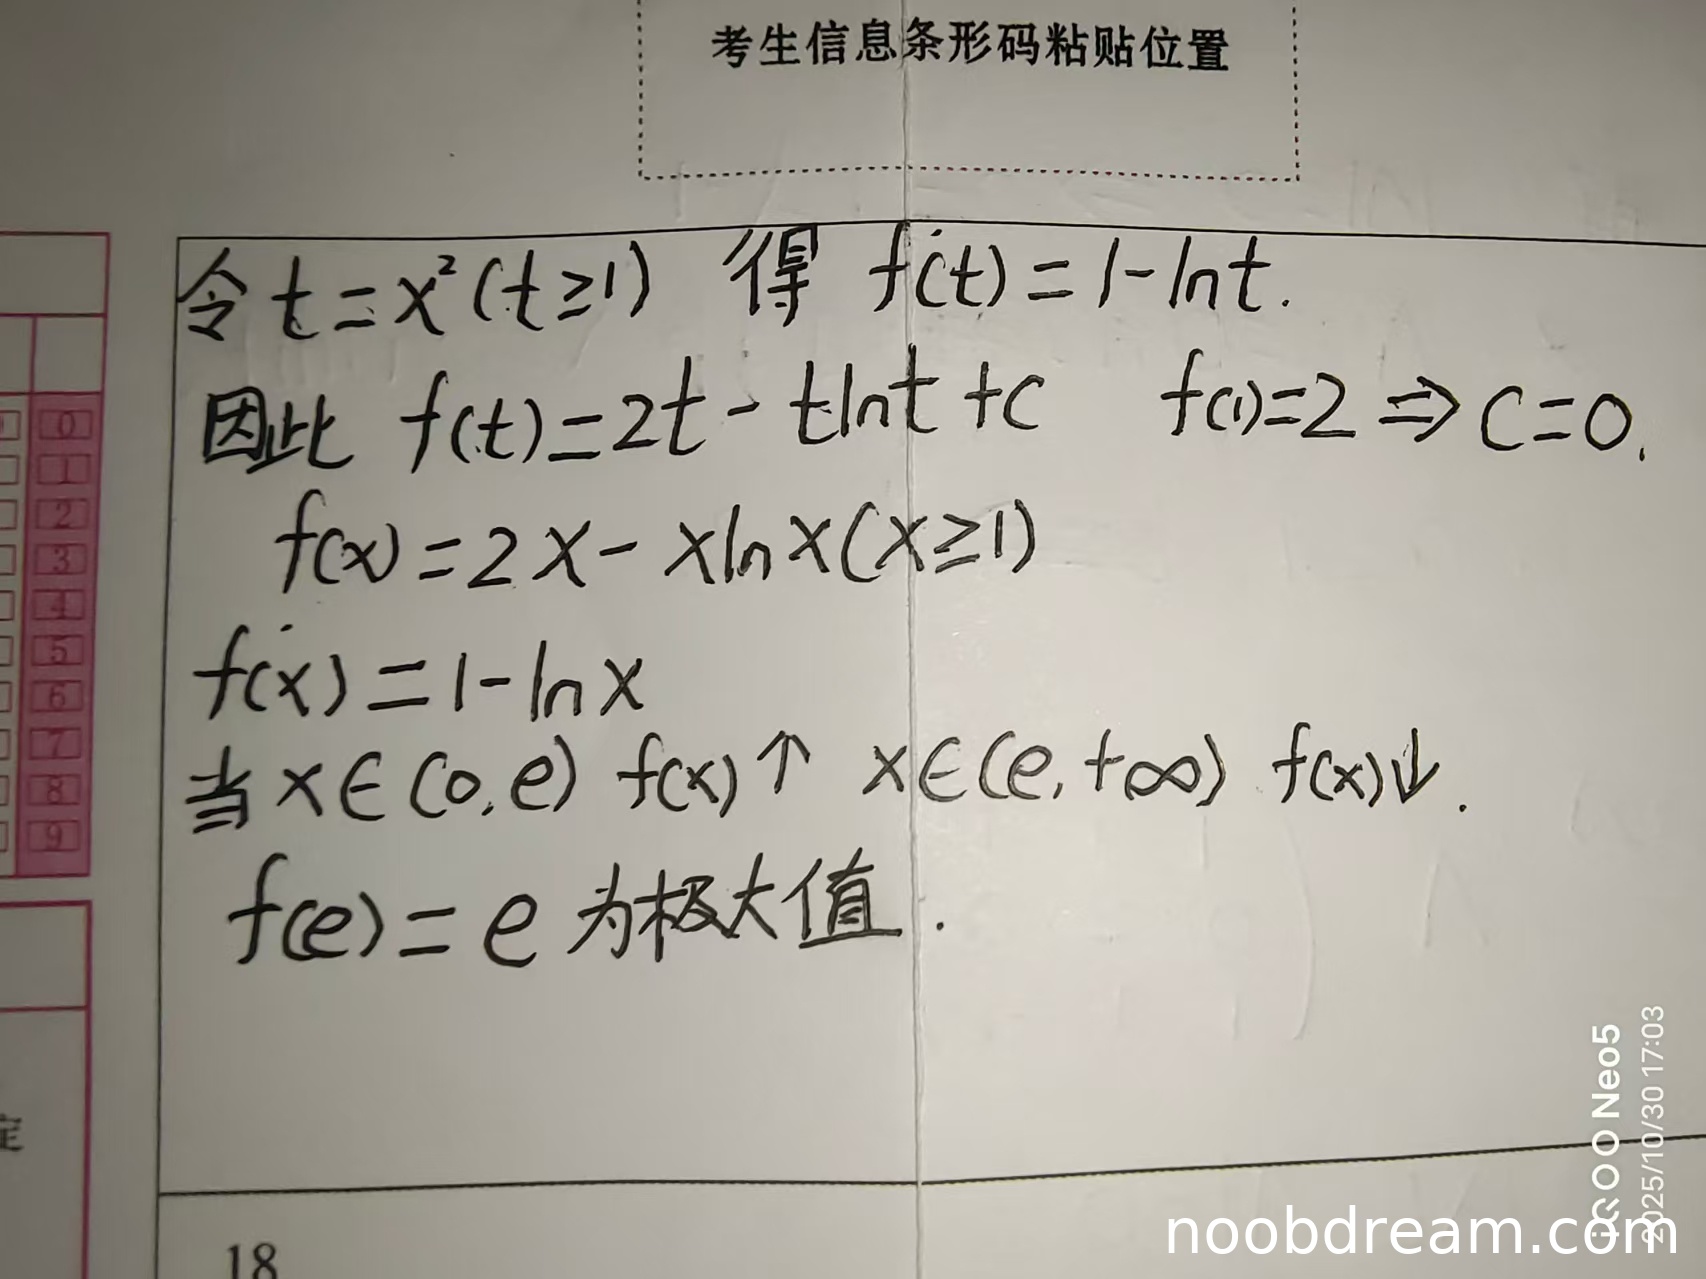 考生信息条形码粘贴位置
令 t=x²(t≥1) 得 f'(t)=1-lnt.
因此 f(t)=2t-tlnt+C f(1)=2⇒C=0.
f(x)=2x-xlnx(x≥1)
f'(x)=1-lnx
当x∈(0,e) f(x)↑ x∈(e,+∞) f(x)↓.
f(e)=e为极大值.
0
1
2
3
4
5
6
7
8
9
定
18
iQOO Neo5
2025/10/30 17:03
noobdream.com